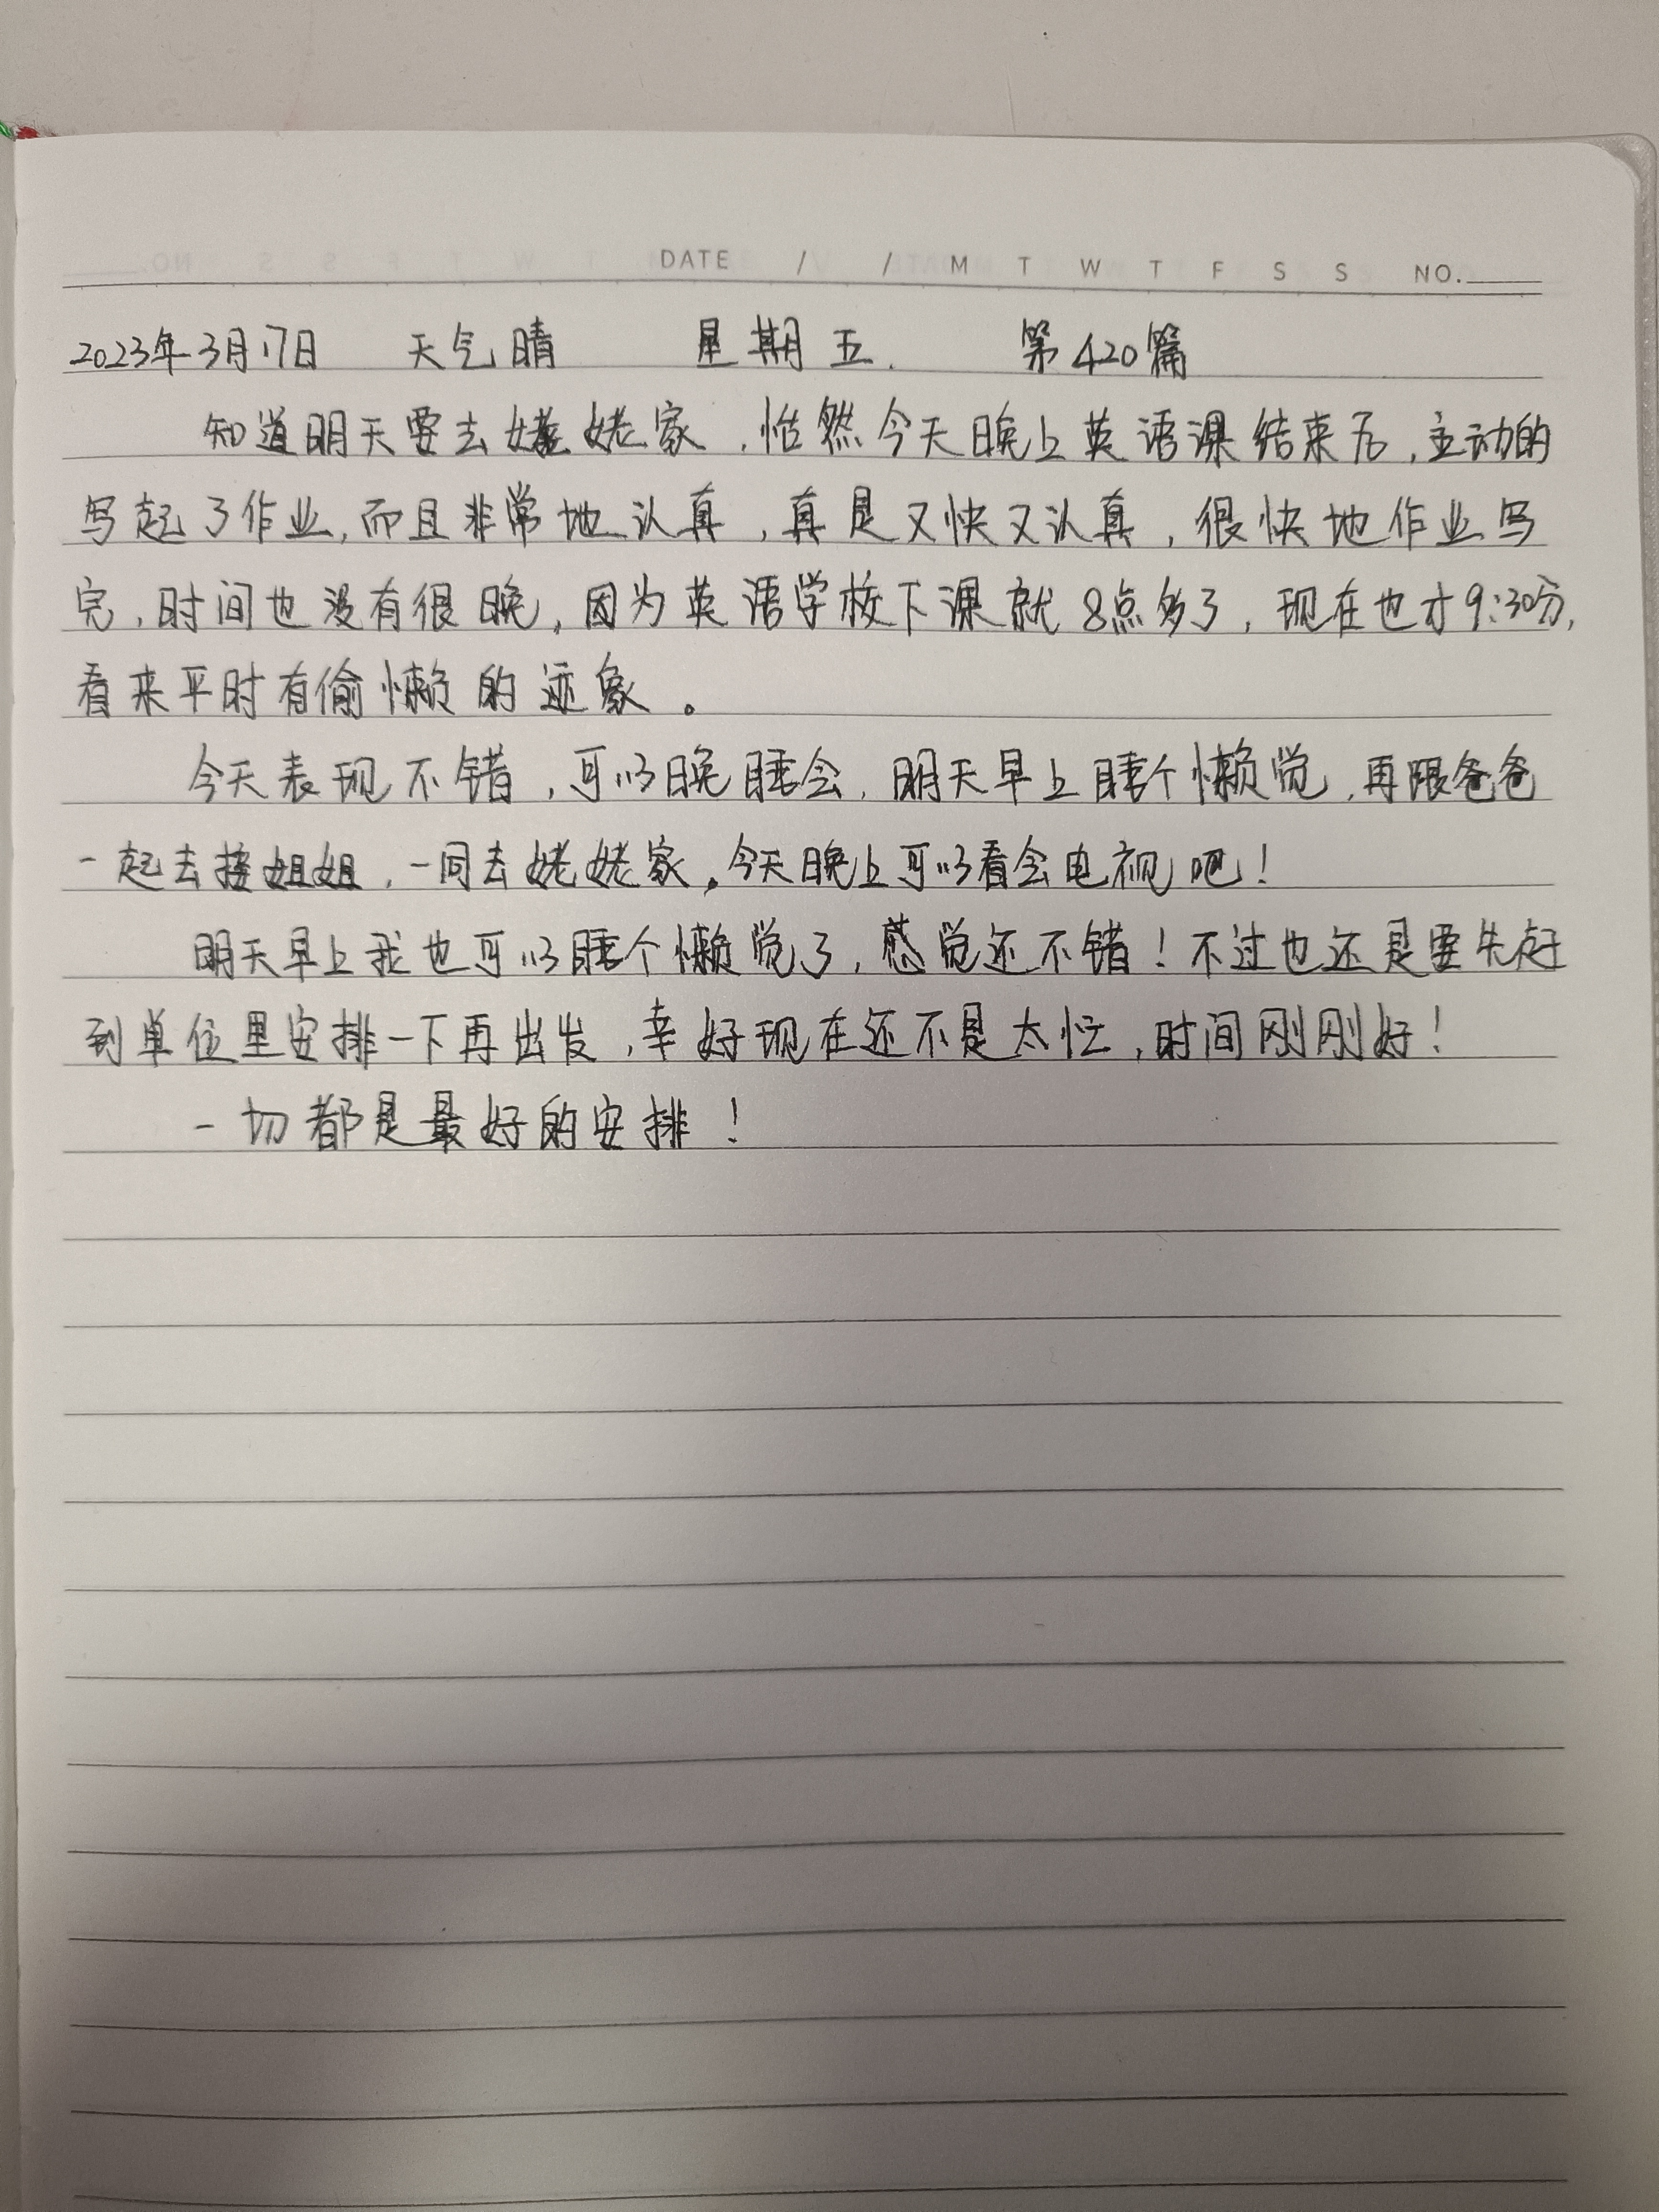 DATE / / M T W T F S S NO.
2023年3月17日 天气晴 星期五. 第420篇
知道明天要去姥姥家，怡然今天晚上英语课结束后，主动的
写起了作业，而且非常地认真，真是又快又认真，很快地作业写
完，时间也没有很晚，因为英语学校下课就8点多了，现在也才9:30分，
看来平时有偷懒的迹象。
今天表现不错，可以晚睡会，明天早上睡个懒觉，再跟爸爸
一起去接姐姐，一同去姥姥家。今天晚上可以看会电视吧！
明天早上我也可以睡个懒觉了，感觉还不错！不过也还是要先赶
到单位里安排一下再出发，幸好现在还不是太忙，时间刚刚好！
一切都是最好的安排！